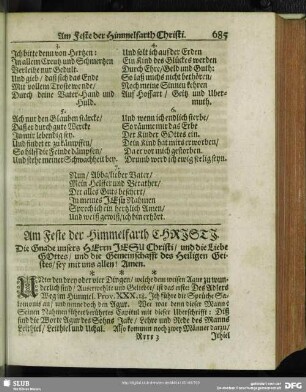 Am Feste der Himmelfarth Christi. 685
3.
Ich bitte denn von Hertzen:
In allem Creutz und Schmertzen
Verleihe nur Gedult.
Und gieb / daß sich das Ende
Mit vollem Troste wende /
Durch deine Vater-Hand und
Huld.
4.
Und solt ich auf der Erden
Ein Kind des Glückes werden
Durch Ehre / Geld und Guth:
So laß michs nicht bethören /
Noch meine Sinnen kehren
Auf Hoffart / Geitz und Uber-
muth.
5.
Ach nur den Glauben stärcke /
Daß er durch gute Wercke
In mir lebendig sey.
Und findet er zu kämpffen /
So hilff die Feinde dämpffen /
Und stehe meiner Schwachheit bey.
6.
Und wenn ich endlich sterbe /
So räume mir das Erbe
Der Kinder GOttes ein.
Dein Kind hat mirs erworben /
Da er vor mich gestorben.
Drum werd ich ewig seelig seyn.
7.
Nun / Abba / lieber Vater /
Mein Helffer und Berather /
Der alles guts beschert /
In meines JEsu Nahmen
Sprech ich ein hertzlich Amen /
Und weiß gewiß / ich bin erhört.
Am Feste der Himmelfarth CHRISTI
Die Gnade unsers HErrn JESU Christi / und die Liebe
GOttes / und die Gemeinschafft des Heiligen Gei-
stes / sey mit uns allen! Amen.
UNter den drey oder vier Dingen / welche dem weisen Agur zu wun-
derlich sind /
Weg im Himmel. Prov. XXX. 19. Ich führe die Sprüche Sa-
lomons an / und nenne doch den Agur. Wer war denn dieser Mann?
Seinen Nahmen führet
sind die Worte Agur des Sohns Jake / Lehre und Rede des Manns
Leithiel / Leithiel und Uchal. Also kommen noch zwey Männer darzu /
Rrrr 3 Ithiel